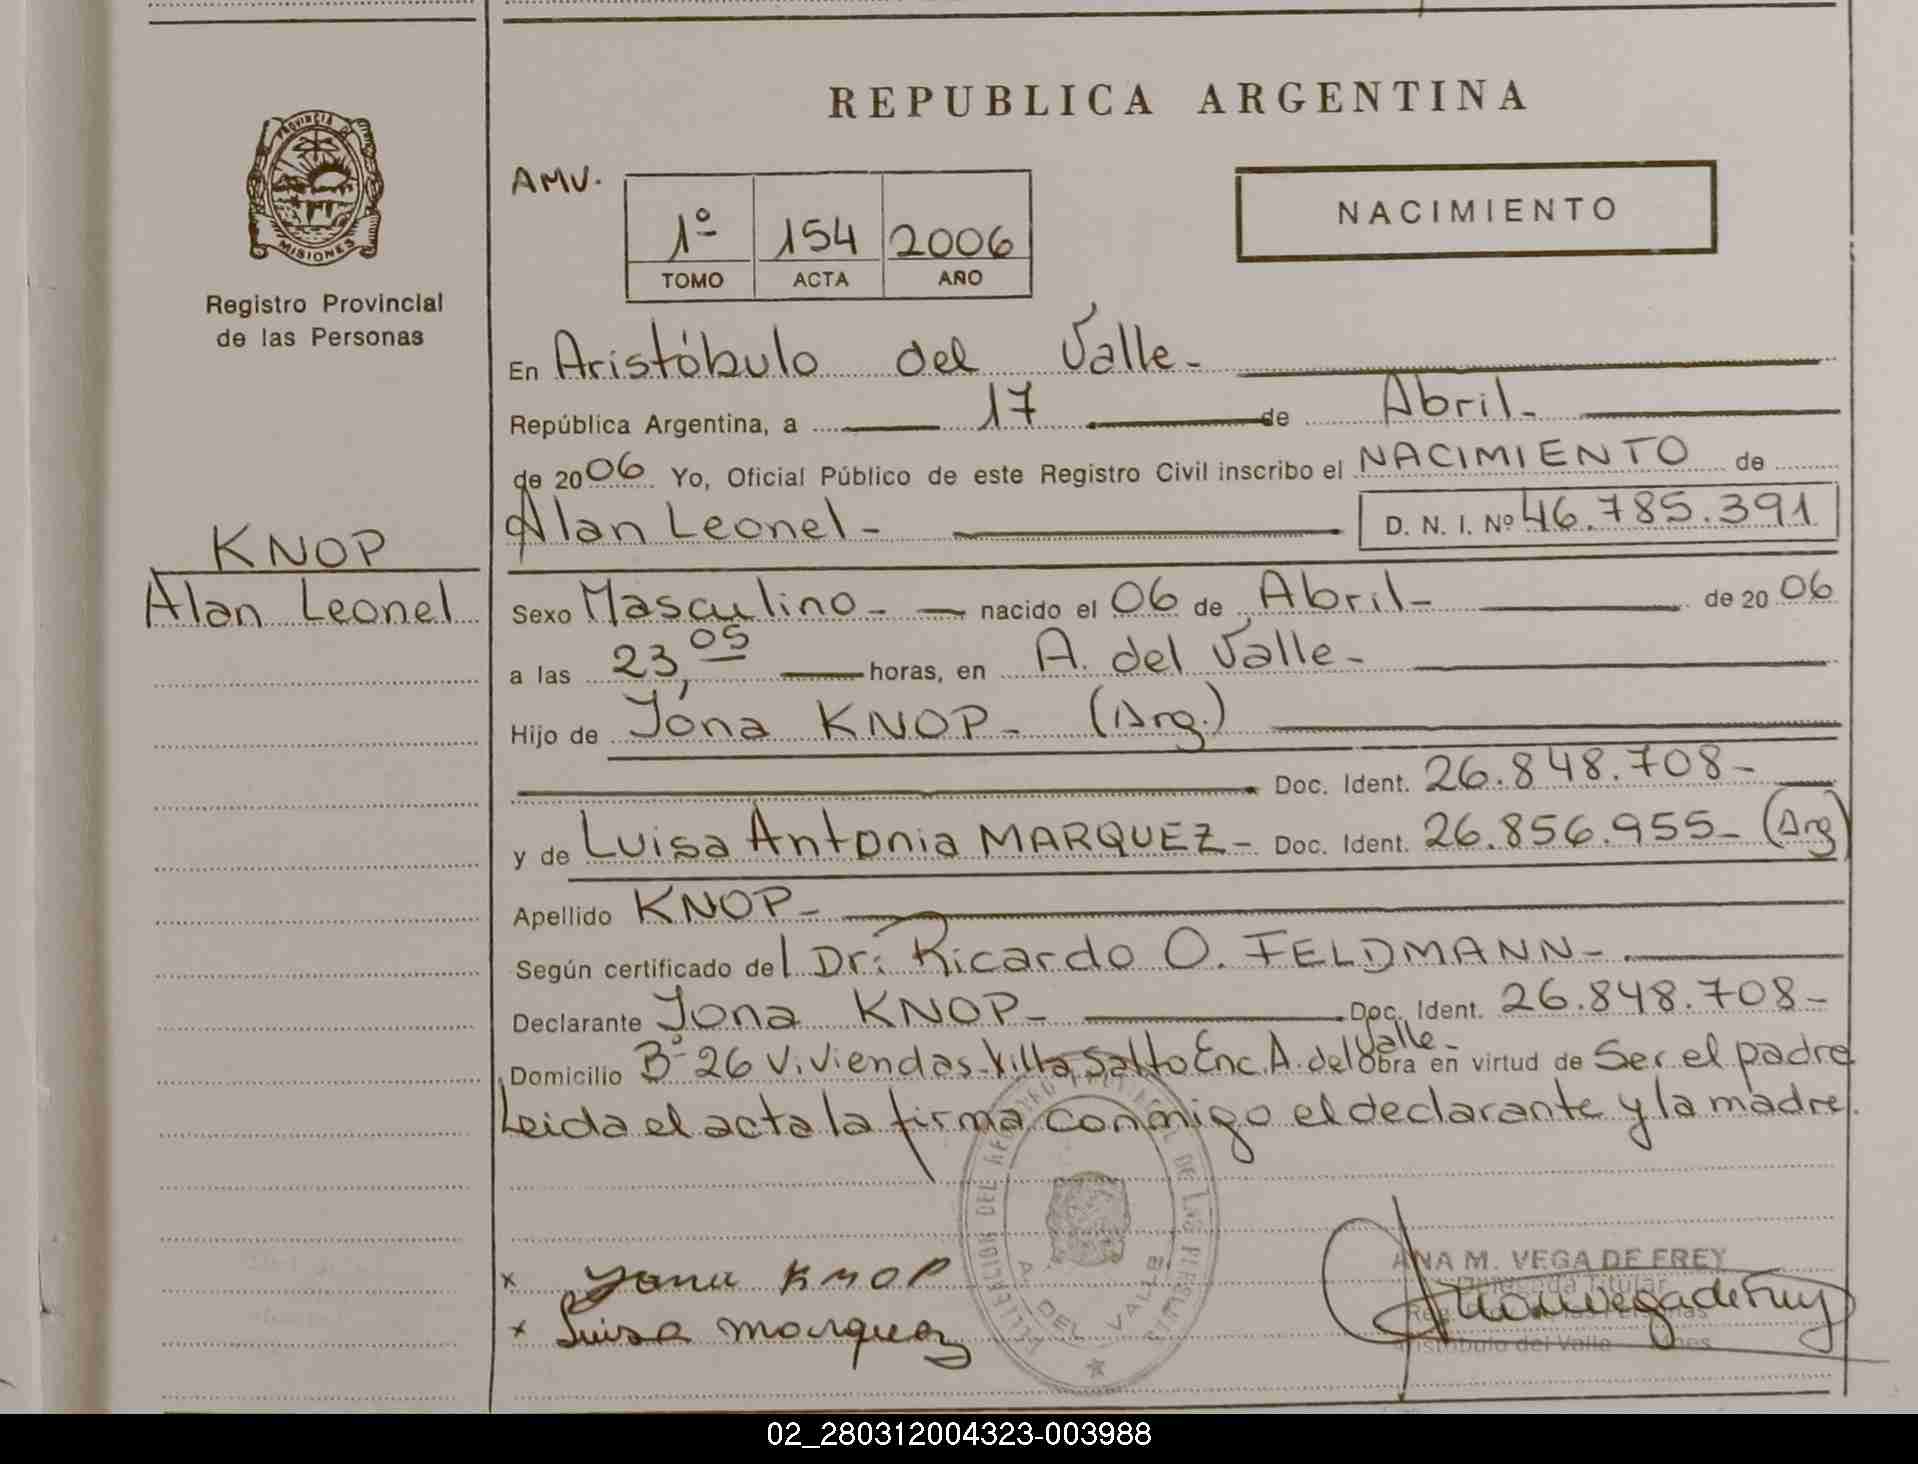 REPUBLICA ARGENTINA
PROVINCIA DE
MISIONES
Registro Provincial
de las Personas
AMV.
1º 154 2006
TOMO ACTA AÑO
NACIMIENTO
En Aristóbulo del Valle-
República Argentina, a 17 de Abril-
de 2006 Yo, Oficial Público de este Registro Civil inscribo el NACIMIENTO de
Alan Leonel- D. N. I. Nº 46.785.391
KNOP
Alan Leonel
Sexo Masculino- nacido el 06 de Abril- de 20 06
a las 23,05 horas, en A. del Valle-
Hijo de Jóna KNOP- (Arg.)
Doc. Ident. 26.848.708-
y de Luisa Antonia MARQUEZ- Doc. Ident. 26.856.955- (Arg)
Apellido KNOP-
Según certificado del Dr: Ricardo O. FELDMANN-
Declarante Jona KNOP- Doc. Ident. 26.848.708-
Domicilio Bº 26 Viviendas-Villa Salto Enc. A. del Valle- Obra en virtud de Ser el padre
Leida el acta la firma conmigo el declarante y la madre.
x Jona KNOP
x Luisa Marquez
A. DEL VALLE
ANA M. VEGA DE FREY
Delegada Titular
Aristóbulo del Valle
02_280312004323-003988